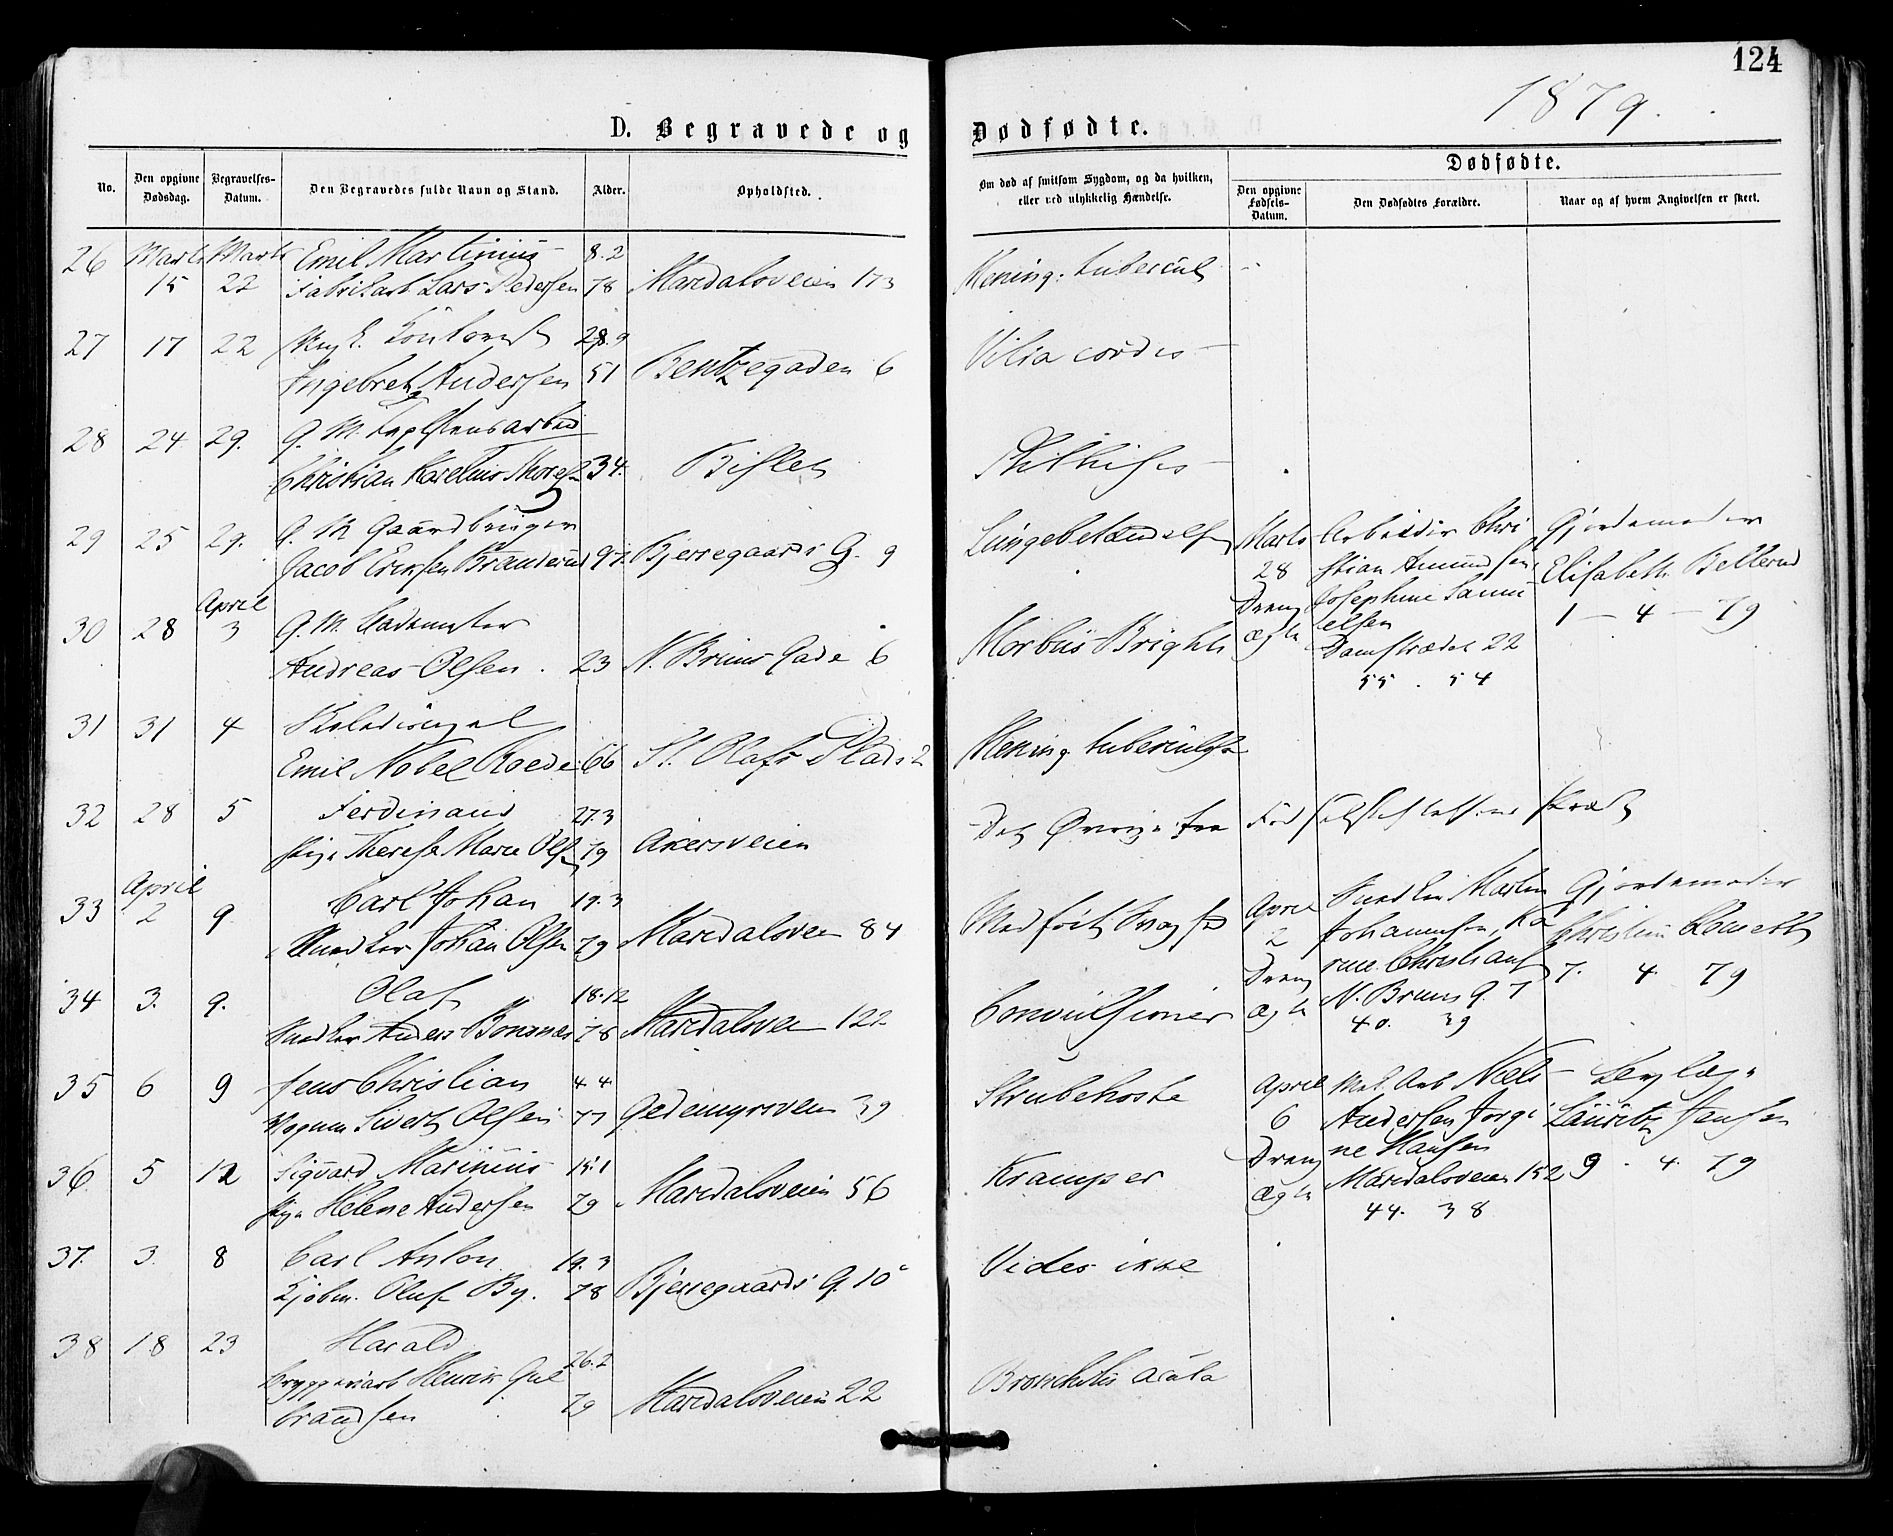 124
1879.
D. Begravede og Dødfødte.
Dødfødte.
No.
Den opgivne Dødsdag.
Begravelses-Datum.
Den Begravedes fulde Navn og Stand.
Alder.
Opholdsted.
Om død af smitsom Sygdom, og da hvilken,
eller ved ulykkelig Hændelse.
Den opgivne Fødsels-Datum.
Den Dødfødtes Forældre.
Naar og af hvem Angivelsen er skeet.
26 Marts Marts Emil Martinius 8.2
15 22 Fabrikarb. Lars Pedersen 78 Maridalsveien 173 Mening. tubercul
27 17 22 28.9
Ingebret Andersen 51 Bentzegaden 6 Vitia cordis
28 24 29. G. M.
Christian Karelius 34. Bislet Phthisis
29 25 29. G. M. Gaardbruger
Jacob Eriksen 97. Bjerregaards G. 9 Lungebetændelse
Marts 28 Dreng ægte
Arbeider Chri
stian Amundsen,
Josephine Samu
elsen
Damstrædet 22
55 . 54
Gjordemoder
Elisabeth Bellerud
1 — 4 — 79
30 28 April 3 G. M.
Andreas Olsen. 23 N. Bruns Gade 6 Morbus Brighti
31 31 4
Emil Nobel Roede 66 St. Olafs Plads 2 Mening tuberculosa
32 28 5 Ferdinand 27.3
Pige Therese Marie Olsen 79 Akersveien
Det Øvrige fra Fødselsstiftelsens
33 April 2 9. Carl Johan 19.3
Snedker Johan Olsen 79 Maridalsveien 84 Medfødt Svaghed
April 2 Dreng Ægte
Snedker Martin
Johannesen, Ka
rine Christians
N. Bruns G. 7
40. 39
Gjordemoder
7. 4. 79
34 3. 9. Olaf 18.12
Snedker Anders 78 Maridalsveien 122 Convulsioner
35 6 9 Jens Christian 4 4
Sivert Olsen 77 Gedemyrsveien 39 Strubehoste
April 6 Dreng Ægte
Arb Niels
Andersen Jørgi
ne Hansen
Maridalsveien 152
44. 38
Lauritz Jensen
9 . 4. 79
36. 5 12 Sigvard Marinius 15.1
Pige Helene Andersen 79 Maridalsveien 56 Kramper
37. 3. 8 Carl Anton 19.3
Kjøbm. Oluf By. 78 Bjerregaards G. 10 Vides ikke
38 18 23 Harald 26.2
Bryggeriarb Henrik Gul
brandsen 79 Maridalsveien 22 Bronchitis acuta